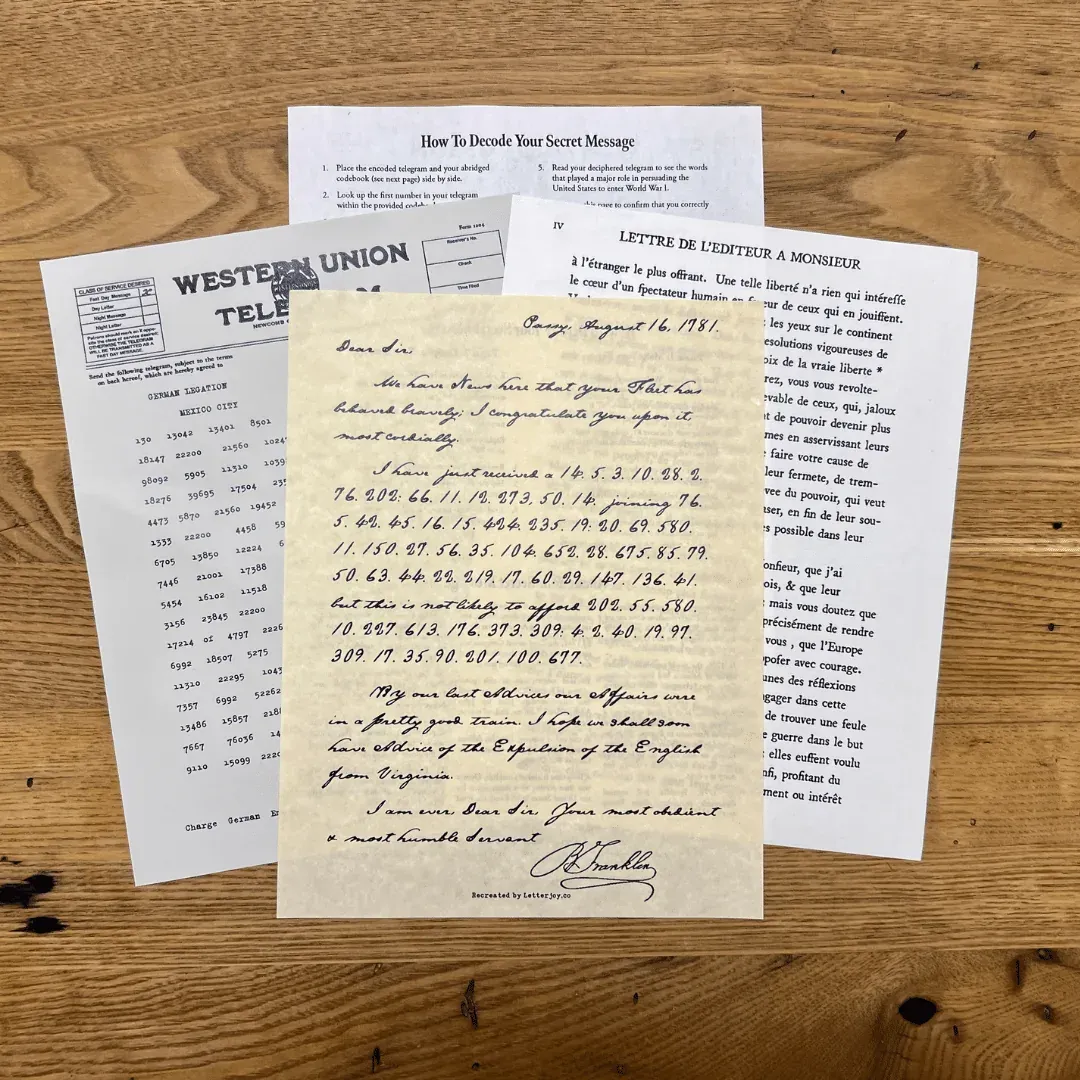 How To Decode Your Secret Message
1. Place the encoded telegram and your abridged
codebook (see next page) side by side.
2. Look up the first number in your telegram
within the provided
5. Read your deciphered telegram to see the words
that played a major role in persuading the
United States to enter World War I.
page to confirm that you correctly
Form 1204
CLASS OF SERVICE DESIRED
Fast Day Message
Day Letter
Night Message
Night Letter
Patrons should mark an X oppo-
site the class of service desired;
OTHERWISE THE TELEGRAM
WILL BE TRANSMITTED AS A
FAST DAY MESSAGE.
WESTERN UNION
TELE
NEWCOMB
Receiver's No.
Check
Time Filed
Send the following telegram, subject to the terms
on back hereof, which are hereby agreed to
GERMAN LEGATION
MEXICO CITY
130 13042 13401 8501
18147 22200 21560 1024
98092 5905 11310 1039
18276 39695 17504 23
4473 5870 21560 19452
1333 22200 4458 59
6705 13850 12224 6
7446 21001 17388
5454 16102 11518
3156 23845 22200
17214 or 4797 2226
6992 18507 5275
11310 22295 1043
7357 6992 52262
13486 15857 218
7667 76036 14
9110 15099 2220
Charge German
IV
LETTRE DE L'EDITEUR A MONSIEUR
à l'étranger le plus offrant. Une telle liberté n'a rien qui intéreſſe
le cœur d'un ſpectateur humain en eur de ceux qui en jouiſſent.
les yeux sur le continent
esolutions vigoureuses de
oix de la vraie liberte *
rez, vous vous revolte-
evable de ceux, qui, jaloux
t de pouvoir devenir plus
mes en asservissant leurs
faire votre cause de
leur fermete, de trem-
vee du pouvoir, qui veut
user, en fin de leur sou-
s possible dans leur
onſieur, que j'ai
ois, & que leur
mais vous doutez que
précisément de rendre
vous, que l'Europe
poſer avec courage.
unes des réflexions
gager dans cette
de trouver une ſeule
e guerre dans le but
elles euſſent voulu
nfi, profitant du
ment ou intérêt
Passy, August 16, 1781.
Dear Sir,
We have News here that your Fleet has
behaved bravely; I congratulate you upon it
most cordially.
I have just received a 14. 5. 3. 10. 28. 2.
76. 202: 66. 11. 12. 273. 50. 14. joining 76.
5. 42. 45. 16. 15. 424. 235. 19: 20. 69. 580.
11. 150. 27. 56. 35. 104. 652. 28. 675. 85. 79.
50. 63. 44. 22. 219. 17. 60. 29. 147. 136. 41.
but this is not likely to afford 202. 55. 580.
10. 227. 613. 176. 373. 309: 4. 2. 40. 19. 97.
309. 17. 35. 90. 201. 100. 677.
By our last Advices our Affairs were
in a pretty good train. I hope we shall soon
have Advice of the Expulsion of the English
from Virginia.
I am ever, Dear Sir, Your most obedient
& most humble Servant
B Franklin
Recreated by Letterjoy.co